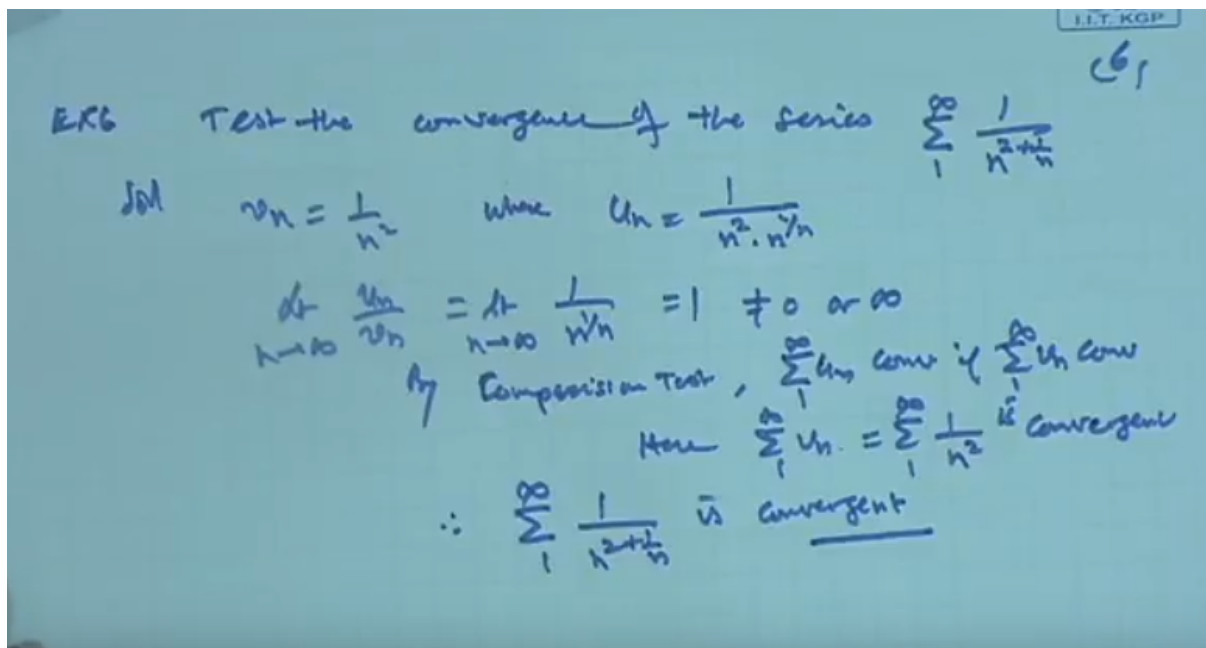 I.I.T. KGP
(6)
EX6 Test the convergence of the series \sum_{1}^{\infty} \frac{1}{n^{2+\frac{1}{n}}}
Sol v_n = \frac{1}{n^2} where u_n = \frac{1}{n^2 . n^{1/n}}
lt_{n→∞} \frac{u_n}{v_n} = lt_{n→∞} \frac{1}{n^{1/n}} = 1 ≠ 0 or ∞
By Comparision Test, \sum_{1}^{\infty} u_n conv if \sum_{1}^{\infty} v_n conv
Here \sum_{1}^{\infty} v_n. = \sum_{1}^{\infty} \frac{1}{n^2} is convergent
∴ \sum_{1}^{\infty} \frac{1}{n^{2+\frac{1}{n}}} is convergent